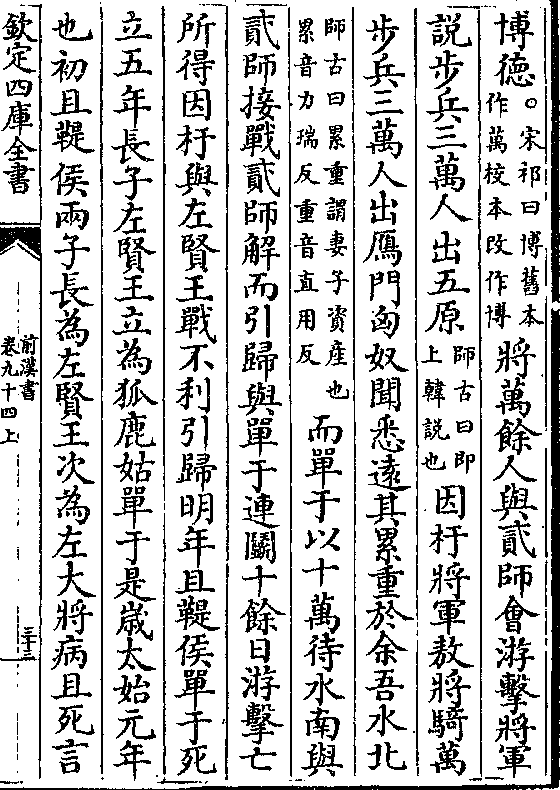 博德○宋祁曰博舊本作萬校本改作博將萬餘人與貳師會游擊將軍
說步兵三萬人出五原師古曰即上韓説也因杅將軍敖將騎萬
步兵三萬人出鴈門匈奴聞悉遠其累重於余吾水北
師古曰累重謂妻子資產也累音力瑞反重音直用反而單于以十萬待水南與
貳師接戰貳師解而引歸與單于連鬭十餘日游擊亡
所得因杅與左賢王戰不利引歸明年且鞮侯單于死
立五年長子左賢王立為狐鹿姑單于是歲太始元年
也初且鞮侯兩子長為左賢王次為左大將病且死言
欽定四庫全書
前漢書
卷九十四上
三十三